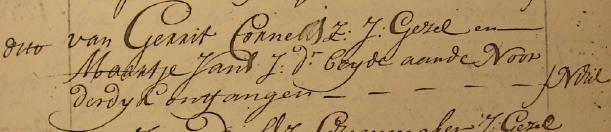 dito van Gerrit Cornelisz: J: Gezel en
Maartje Jans J: dr beyde aande Noor
derdyk ontfangen - - - - - Nihil
J: Gezel